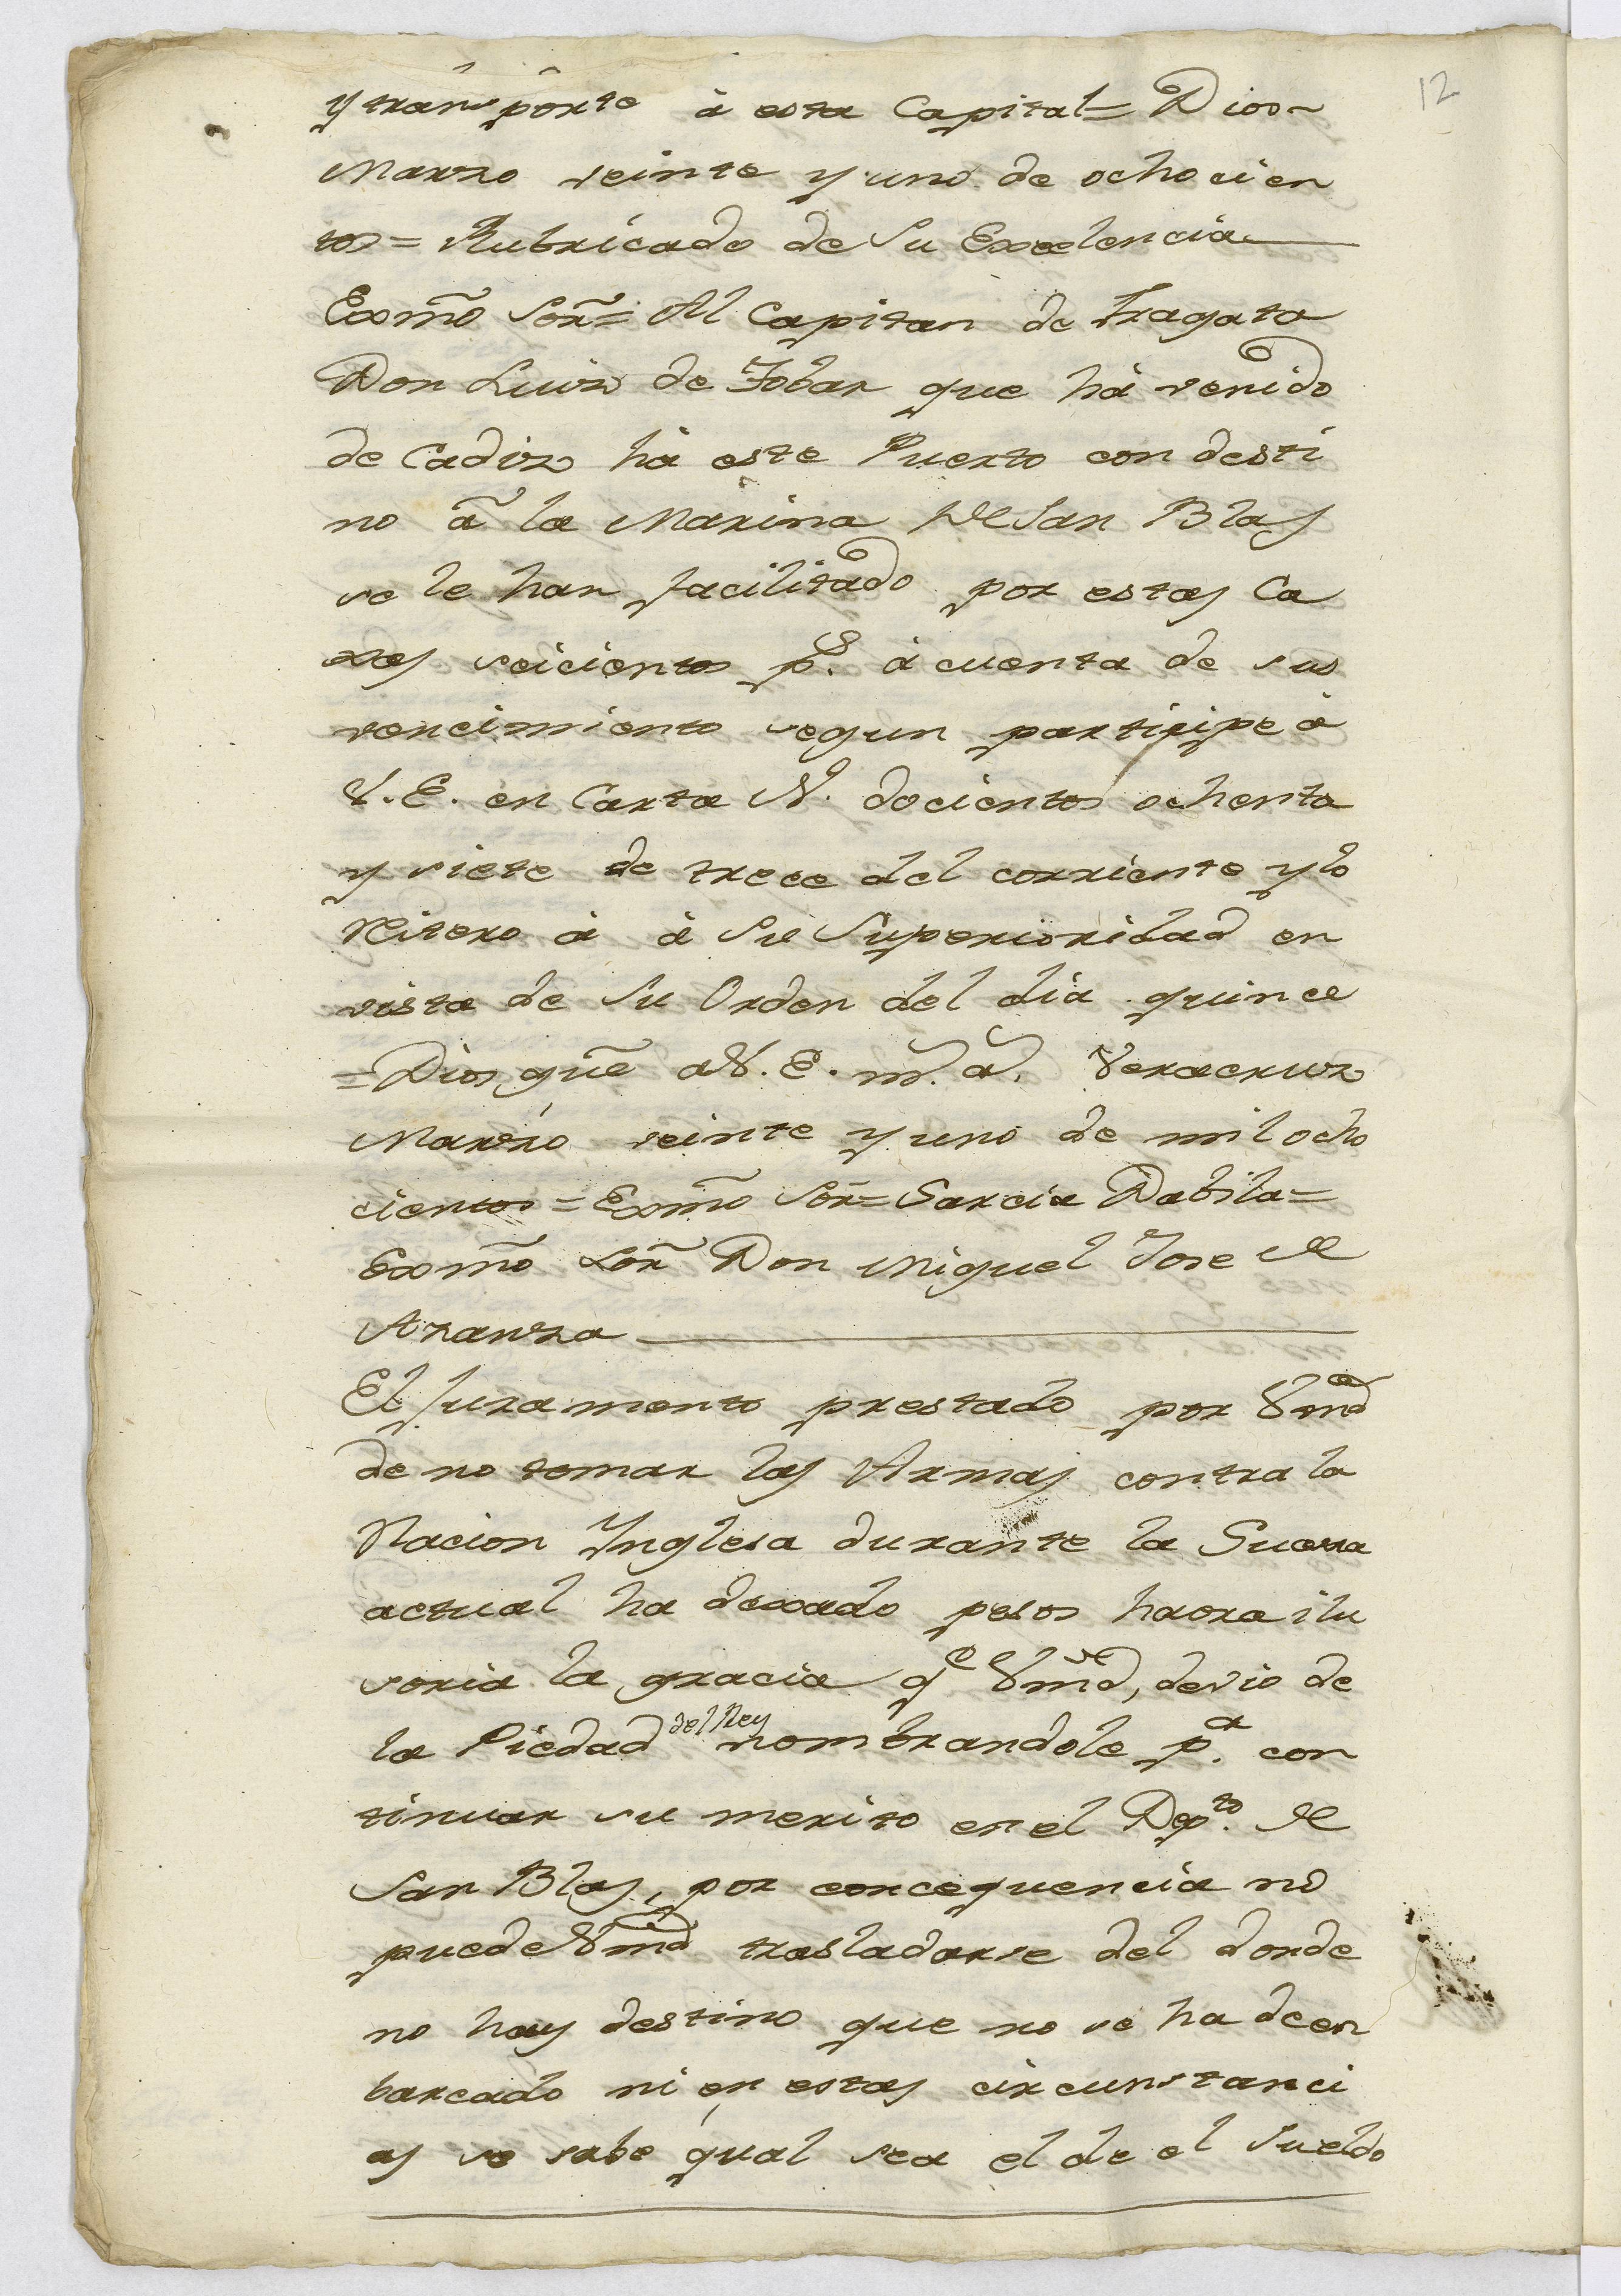 12
y transporte à esta Capital= Dios~
Marzo veinte y uno de ochocien
tos= Rubricado de Su Excelencia
Exmõ Sor̃= Al Capitan de Fragata
Don Luiz de Tobar que hà venido
de Cadiz hà este Puerto con desti
no ã la Marina de San Blas
se le han facilitado por estas Ca
xas seicientos p.s à cuenta de sus
vencimiento segun participe à
V.E. en Carta N. docientos ochenta
y siete de trece del corriente y lo
Reitero à à Su Superioridad en
vista de Su Orden del dia quince
=Dios gue a V.E. m.s a.s Veracruz
Marzo veinte y uno de mil ocho
cientos=Exmõ Sor̃=Garcia Dabila=
Exmõ Sor̃ Don Miguel Jose de
Azanza
El Juramento prestado por Vmd
de no tomar las Armas contra la
Nacion Ynglesa durante la Guerra
actual ha dexado pesos haora ilu
soria la gracia q.e Vmd, devio de
la Piedad del Rey nombrandole p.a con
tinuar su merito en el Dep.to de
San Blas, por concequencia no
puede Vmd trasladarse del donde
no hay destino que no se ha de en
barcado ni en estas circunstanci
as se sabe qual sea el de el Sueldo